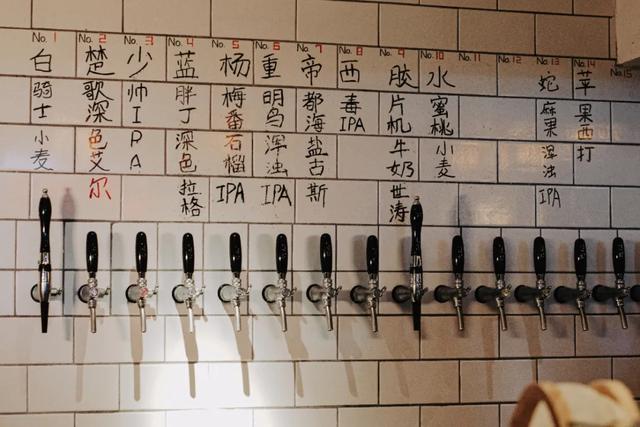 No. 1
白骑士小麦
No. 2
楚歌深色艾尔
No. 3
少帅IPA
No. 4
蓝胖丁深色拉格
No. 5
杨梅番石榴IPA
No. 6
重明鸟浑浊IPA
No. 7
帝都海盐古斯
No. 8
西毒IPA
No. 9
胶片机牛奶世涛
No. 10
水蜜桃小麦
No. 11
No. 12
No. 13
蛇麻果浑浊IPA
No. 14
苹果西打
No. 15